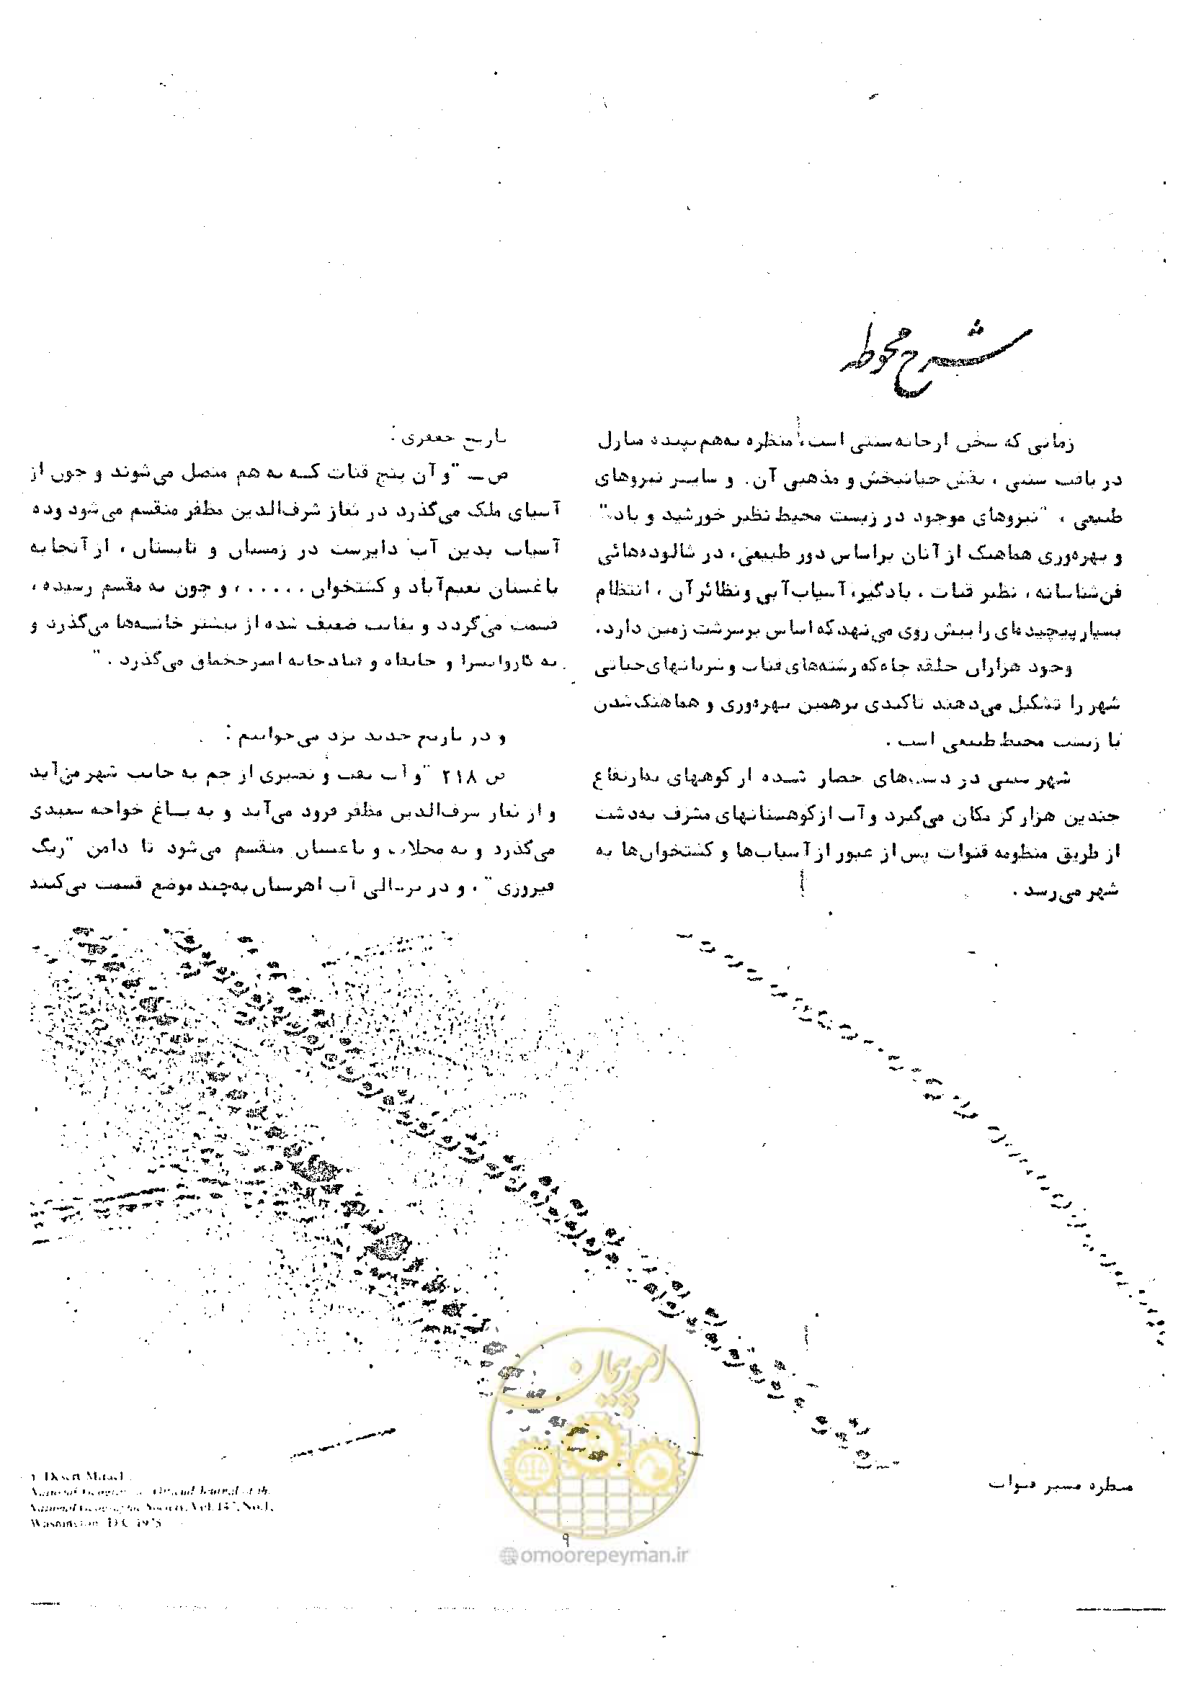 شرح محوطه
زمانی که سخن از خانه سنتی است، منظره به‌هم‌تپیده منازل
در بافت سنتی ، نقش حیاتبخش و مذهبی آن. و سایر نیروهای
طبیعی ، "نیروهای موجود در زیست محیط نظیر خورشید و باد."
و بهره‌وری هماهنگ از آنان براساس دور طبیعی، در شالوده‌هائی
فن‌شناسانه ، نظیر قنات ، بادگیر، آسیاب‌آبی و نظائر آن ، انتظام
بسیار پیچیده‌ای را پیش روی می‌نهد، که اساس بر سرشت زمین دارد.
وجود هزاران حلقه چاه که رشته‌های قنات و شریانهای حیاتی
شهر را تشکیل می‌دهند تاکیدی بر همین بهره‌وری و هماهنگ شدن
با زیست محیط طبیعی است .
شهر سنتی در دست‌های حصار شده از کوههای بارتفاع
چندین هزار گز مکان می‌گیرد و آب از کوهستانهای مشرف به‌دشت
از طریق منظومه قنوات پس از عبور از آسیاب‌ها و کشتخوان‌ها به
شهر می‌رسد .
تاریخ جعفری :
ص — "و آن پنج قنات که به هم متصل می‌شوند و چون از
آسیای ملک می‌گذرد در تفاز شرف‌الدین مظفر منقسم می‌شود و ده
آسیاب بدین آب دایرست در زمستان و تابستان ، از آنجا به
باغستان نعیم‌آباد و کشتخوان ..... ، و چون به مقسم رسیده ،
قسمت می‌گردد و بغایت ضعیف شده از بیشتر خانه‌ها می‌گذرد و
به کاروانسرا و خانقاه و امیر چخماق می‌گذرد . "
و در تاریخ جدید یزد می‌خوانیم :
ص ۲۱۸ "و آب تفت و نصیری از جم به جانب شهر می‌آید
و از تفاز شرف‌الدین مظفر فرود می‌آید و به باغ خواجه سعیدی
می‌گذرد و به محلات و باغستان منقسم می‌شود تا دامن "ریگ
فیروزی" ، و در آب اهرستان به‌چند موضع قسمت می‌کنند
امور پیمان
منظره مسیر قنوات
National Geographic Society, Vol. 147, No. 1,
Washington D.C. 1975
۹
@omoorepeyman.ir